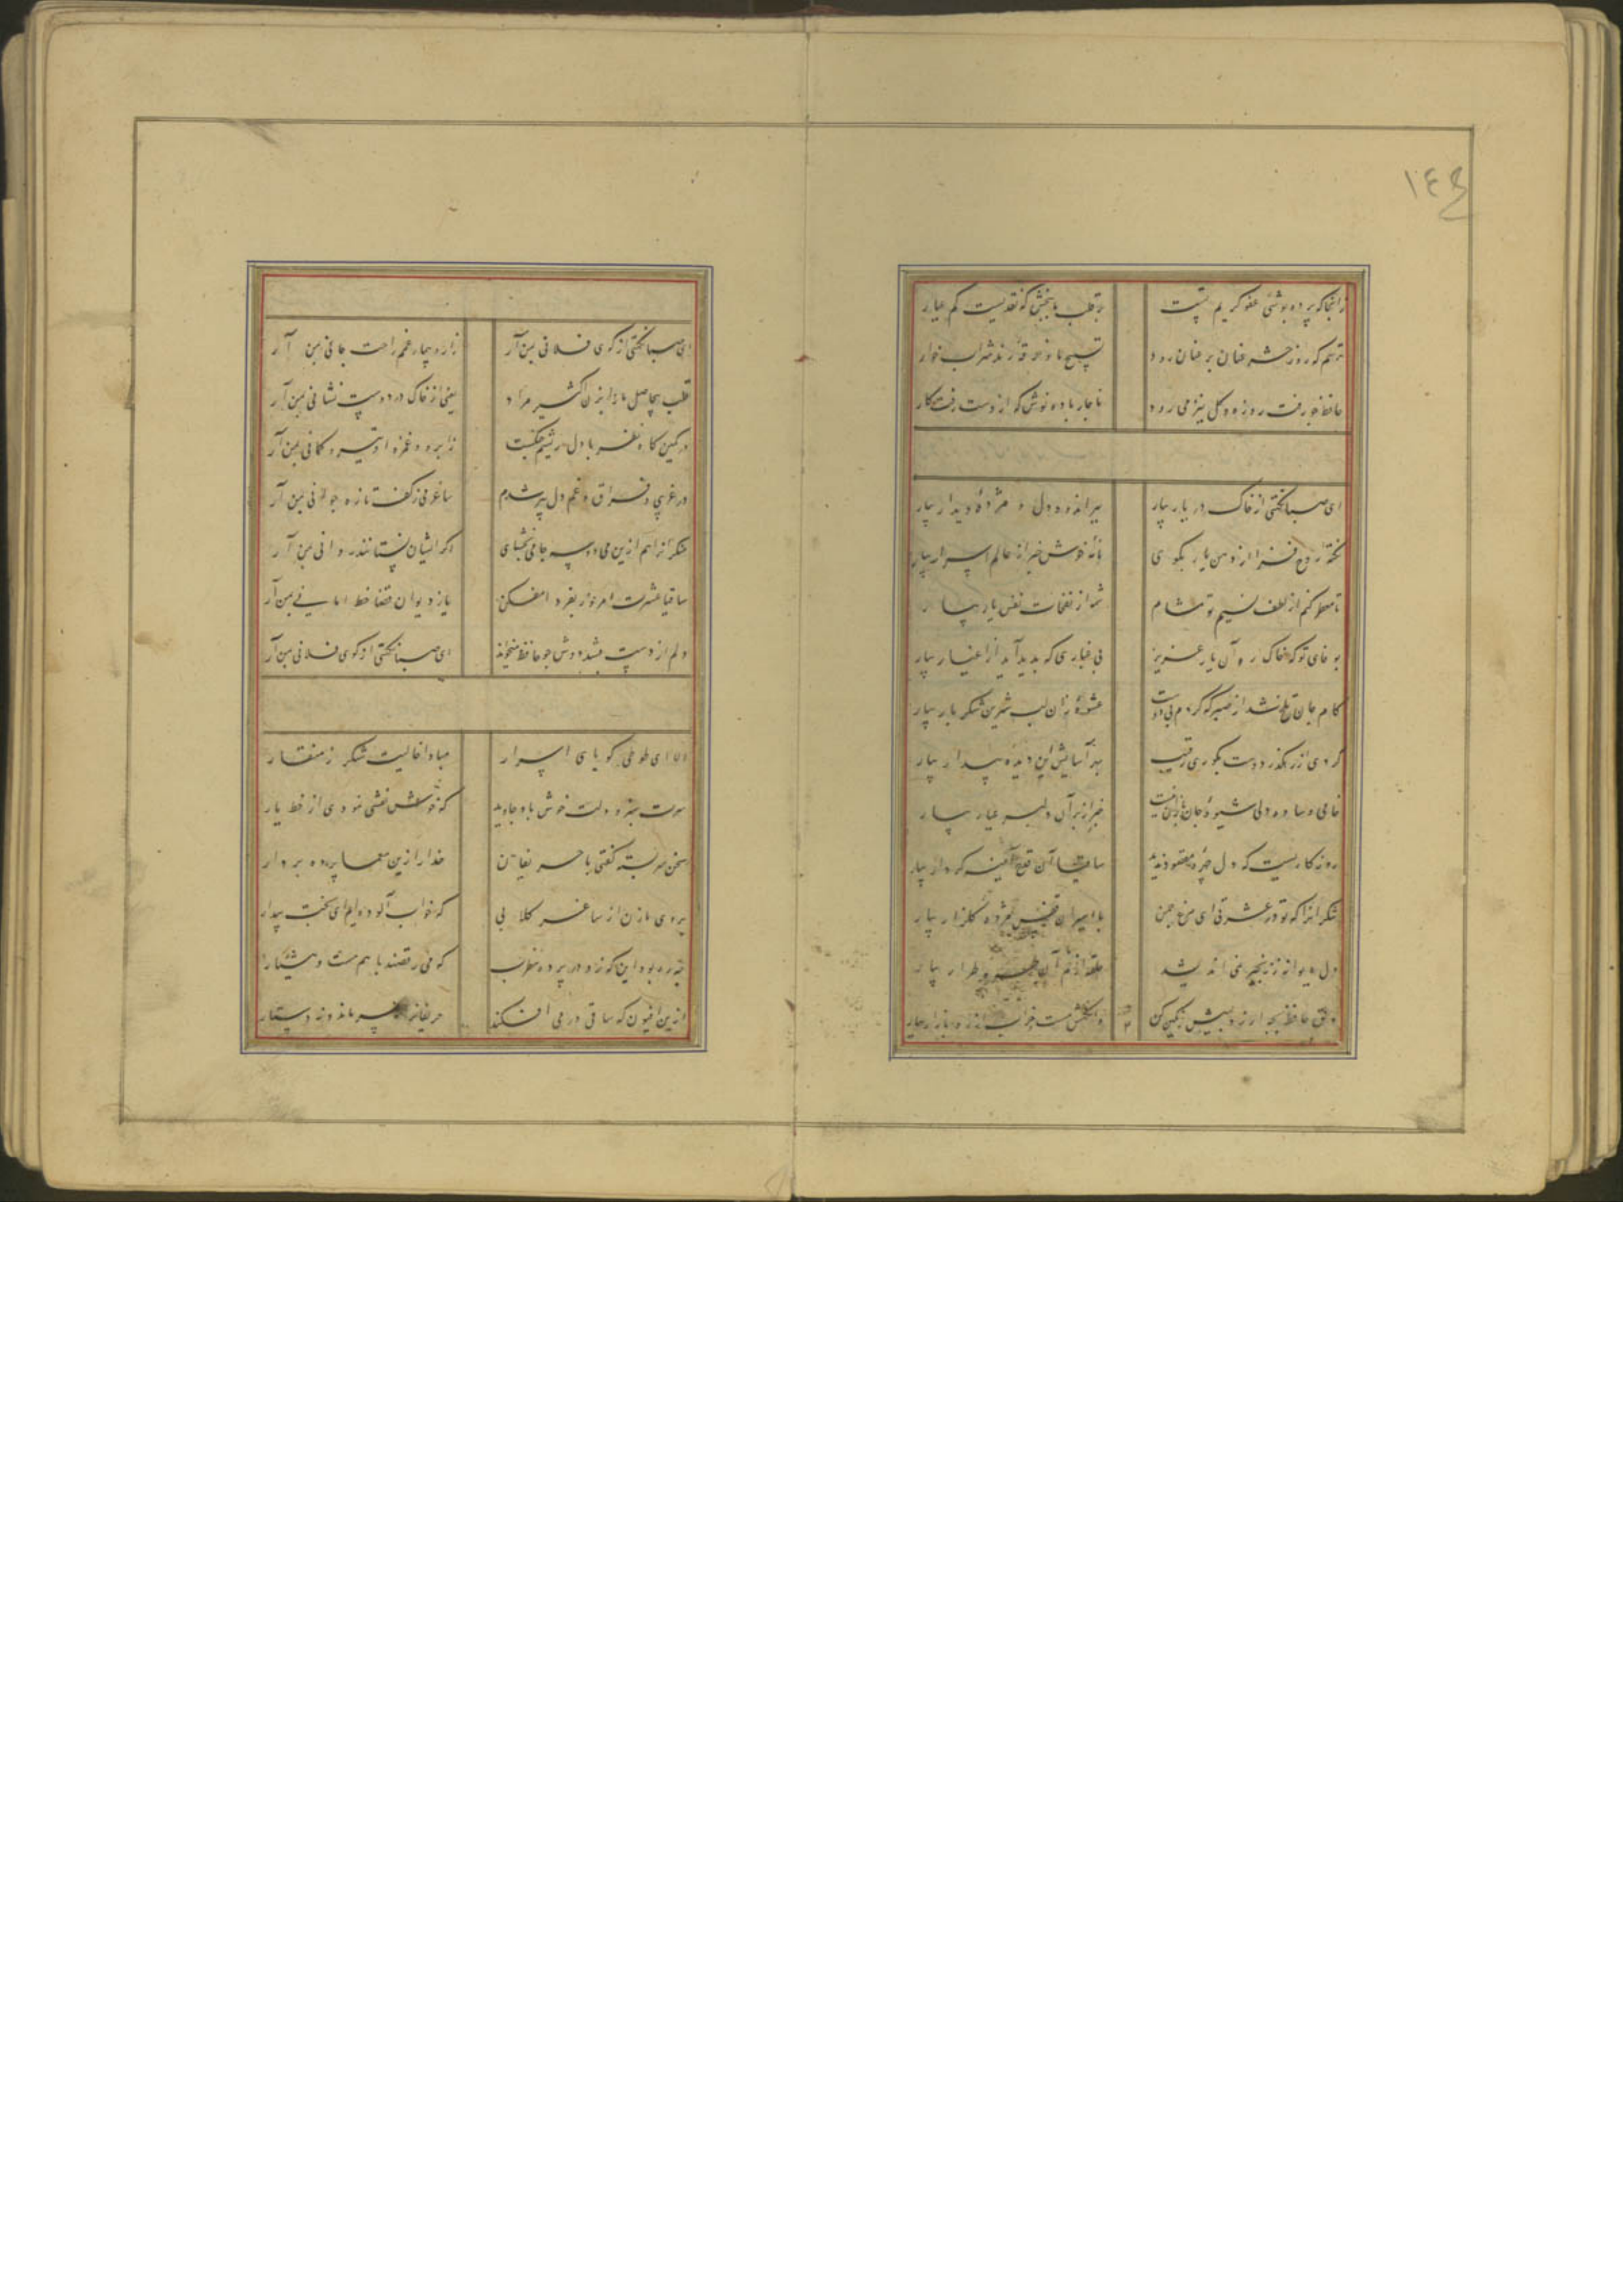 ١٤٤
زانجا که پرده پوشی عفو کریم تست
بر قلب ما ببخش که نقدیست کم عیار
ترسم که روز حشر عنان بر عنان رود
تسبیح ما و خرقه رند شراب خوار
حافظ چو رفت روزه و گل نیز می رود
ناچار باده نوش که از دست رفت کار
ای صبا نکهتی از خاک در یار بیار
ببر اندوه دل و مژده دیدار بیار
نکته روح فزا از دهن یار بگوی
نامه خوش خبر از عالم اسرار بیار
تا معطر کنم از لطف نسیم تو مشام
شمه از نفحات نفس یار بیار
بوفای تو که خاک ره آن یار عزیز
بی غباری که پدید آید از اغیار بیار
کام جان تلخ شد از صبر که کردم بی دوست
عشوه زان لب شیرین شکر بار بیار
گردی از رهگذر دوست بکوری رقیب
بهر آسایش این دیده بیدار بیار
خامی و ساده دلی شیوه جان بازان نیست
خبر از بر آن دلبر عیار بیار
روزگاریست که دل چهره مقصود ندید
ساقیا آن قدح آینه کردار بیار
شکر آنرا که تو در عشرتی ای مرغ چمن
باسیران قفس مژده گلزار بیار
دل دیوانه ز زنجیر نمی اندیشد
حلقه از خم آن طره طرار بیار
دلق حافظ بچه ارزد بمیش رنگین کن
وانگهش مست خراب از سر بازار بیار
ای صبا نکهتی از کوی فلانی بمن آر
زار و بیمار غمم راحت جانی بمن آر
قلب بیحاصل ما را بزن اکسیر مراد
یعنی از خاک در دوست نشانی بمن آر
در کمین گاه نظر با دل ریشم جنگست
ز ابرو و غمزه او تیر و کمانی بمن آر
در غریبی و فراق و غم دل پیر شدم
ساغر می ز کف تازه جوانی بمن آر
منکرانرا هم ازین می دو سه جامی بچشان
اگر ایشان نستانند روانی بمن آر
ساقیا عشرت امروز بفردا مفکن
یا ز دیوان قضا خط امانی بمن آر
دلم از دست بشد دوش چو حافظ میخواند
ای صبا نکهتی از کوی فلانی بمن آر
الا ای طوطی گویای اسرار
مبادا خالیت شکر ز منقار
سرت سبز و دلت خوش باد جاوید
که خوش نقشی نمودی از خط یار
سخن سربسته گفتی با حریفان
خدا را زین معما پرده بردار
بروی ما زن از ساغر گلابی
که خواب آلوده ایم ای بخت بیدار
چه ره بود این که زد در پرده مطرب
که می رقصند با هم مست و هشیار
ازین افیون که ساقی در می افکند
حریفانرا نه سر ماند و نه دستار